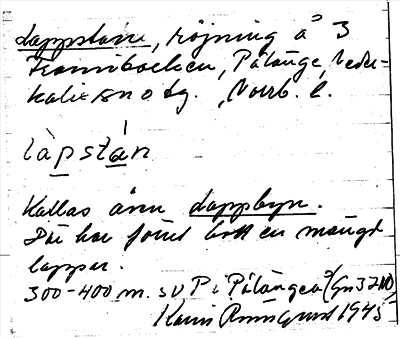 Lappstan, röjning å 3
Frambacken, Pålänge, Neder-
kalix sn o tg., Norrb. l.
làpstán
Kallas även Lappbyn.
Där har förut bott en mängd
lappar.
300-400 m. SV P i Pålänge
Karin 1945